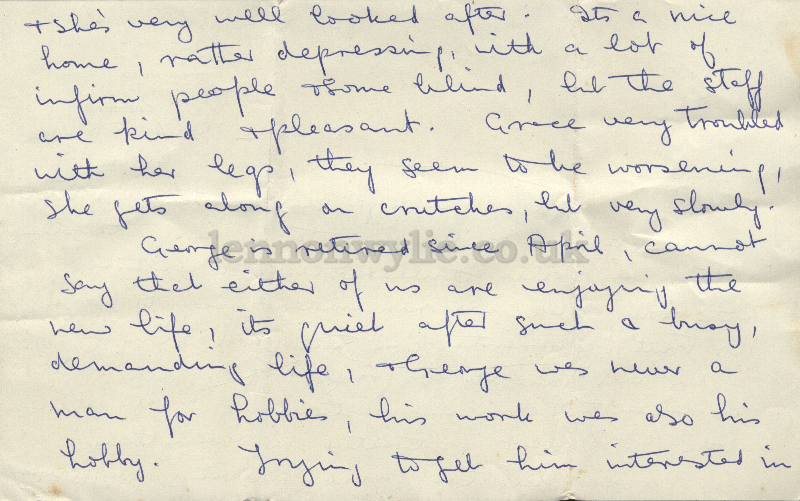 + she's very well looked after. Its a nice
home, rather depressing, with a lot of
infirm people + some blind, but the staff
are kind + pleasant. Grace very troubled
with her legs, they seem to be worsening,
she gets along on crutches, but very slowly.
George is retired since April, cannot
say that either of us are enjoying the
new life, its quiet after such a busy,
demanding life, + George was never a
man for hobbies, his work was also his
hobby. Trying to get him interested in
lennonwylie.co.uk